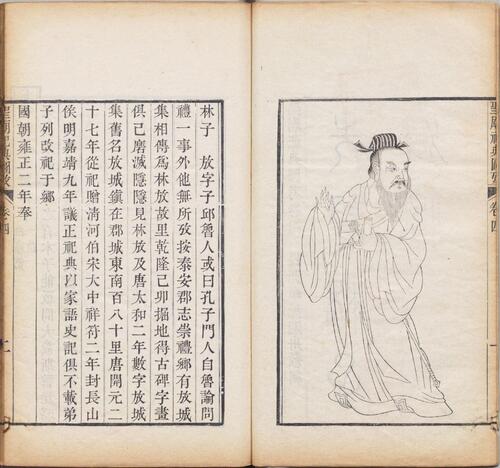 聖廟祀典圖攷 卷四
林子 放字子邱魯人或曰孔子門人自魯論問
禮一事外他無所攷按泰安郡志崇禮鄉有放城
集相傳為林放故里乾隆己卯掘地得古碑字畫
俱已磨滅隱隱見林放及唐太和二年數字放城
集舊名放城鎮在郡城東南百八十里唐開元二
十七年從祀贈清河伯宋大中祥符二年封長山
侯明嘉靖九年議正祀典以家語史記俱不載弟
子列改祀于鄉
國朝雍正二年奉
聖廟祀典圖攷 卷四 一